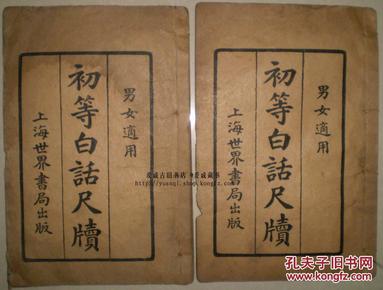 男女適用
初等白話尺牘
上海世界書局出版
男女適用
初等白話尺牘
上海世界書局出版
http://yuanqi.shop.kongfz.com
孔夫子旧书网